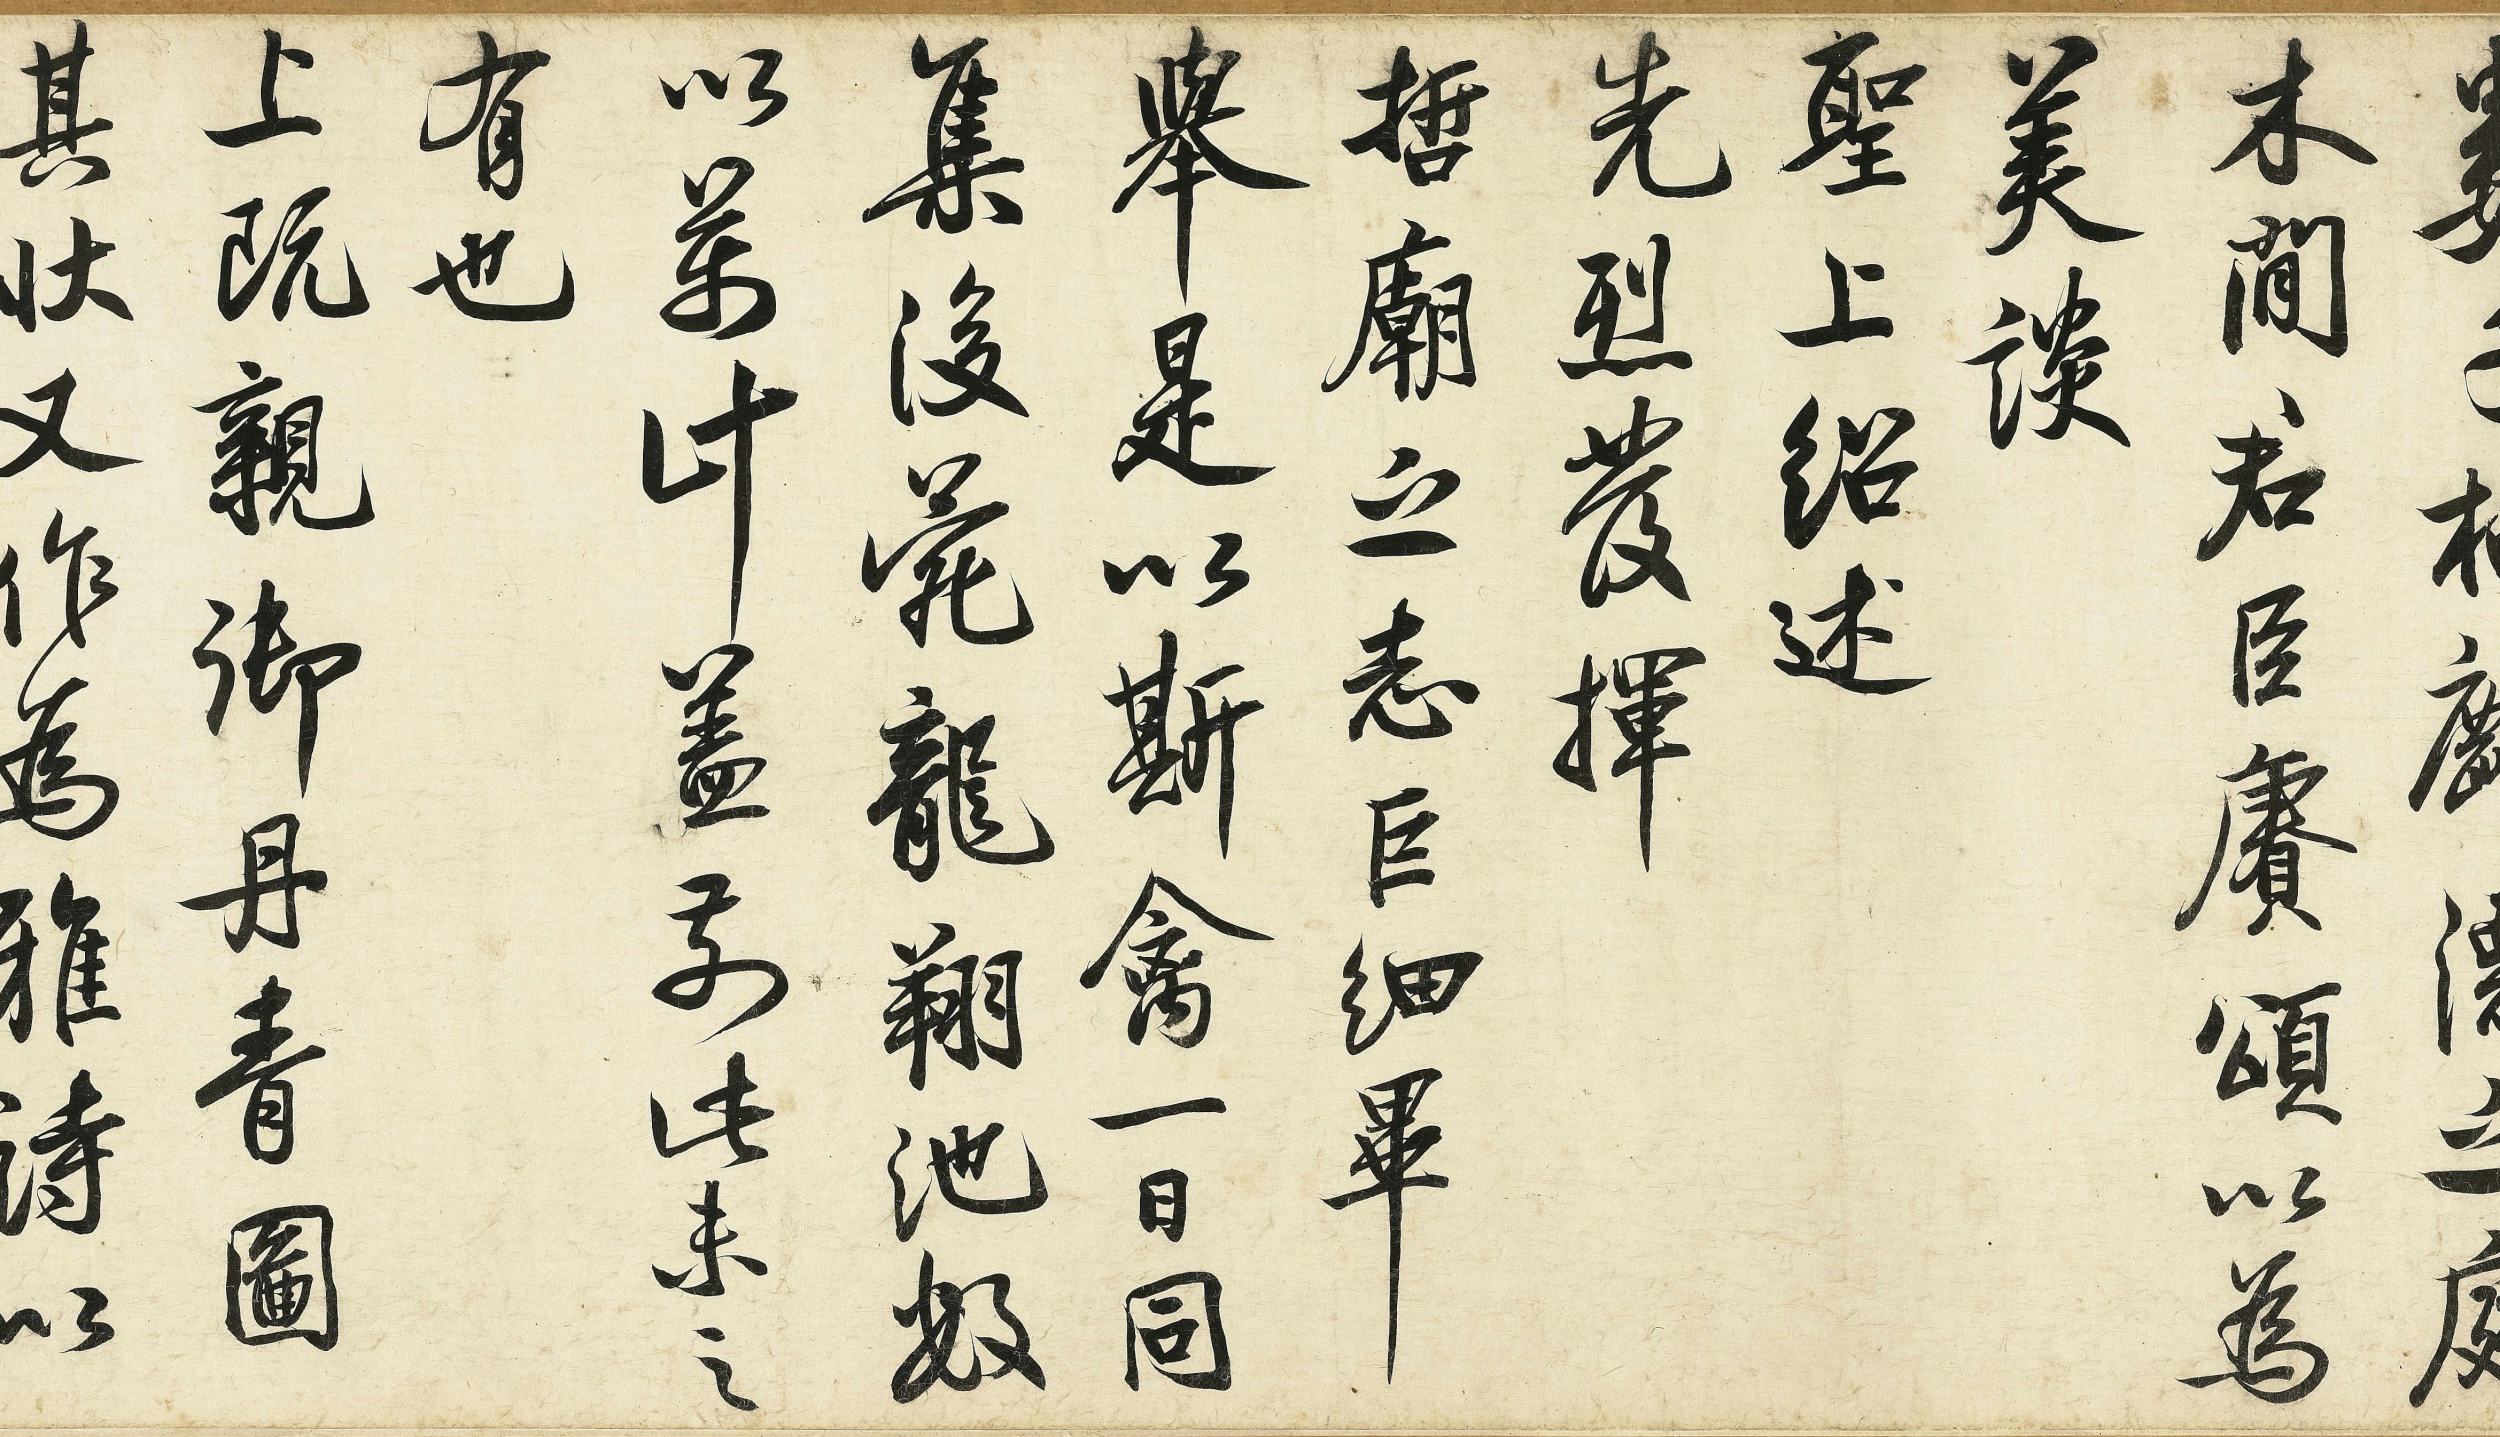 木間君臣賡頌以為
美談
聖上紹述
先烈發揮
哲廟之志巨細畢
舉是以斯禽一日同
集後苑龍翔池數
以萬計蓋前此未之
有也
上既親御丹青圖
其狀又作為雅詩以